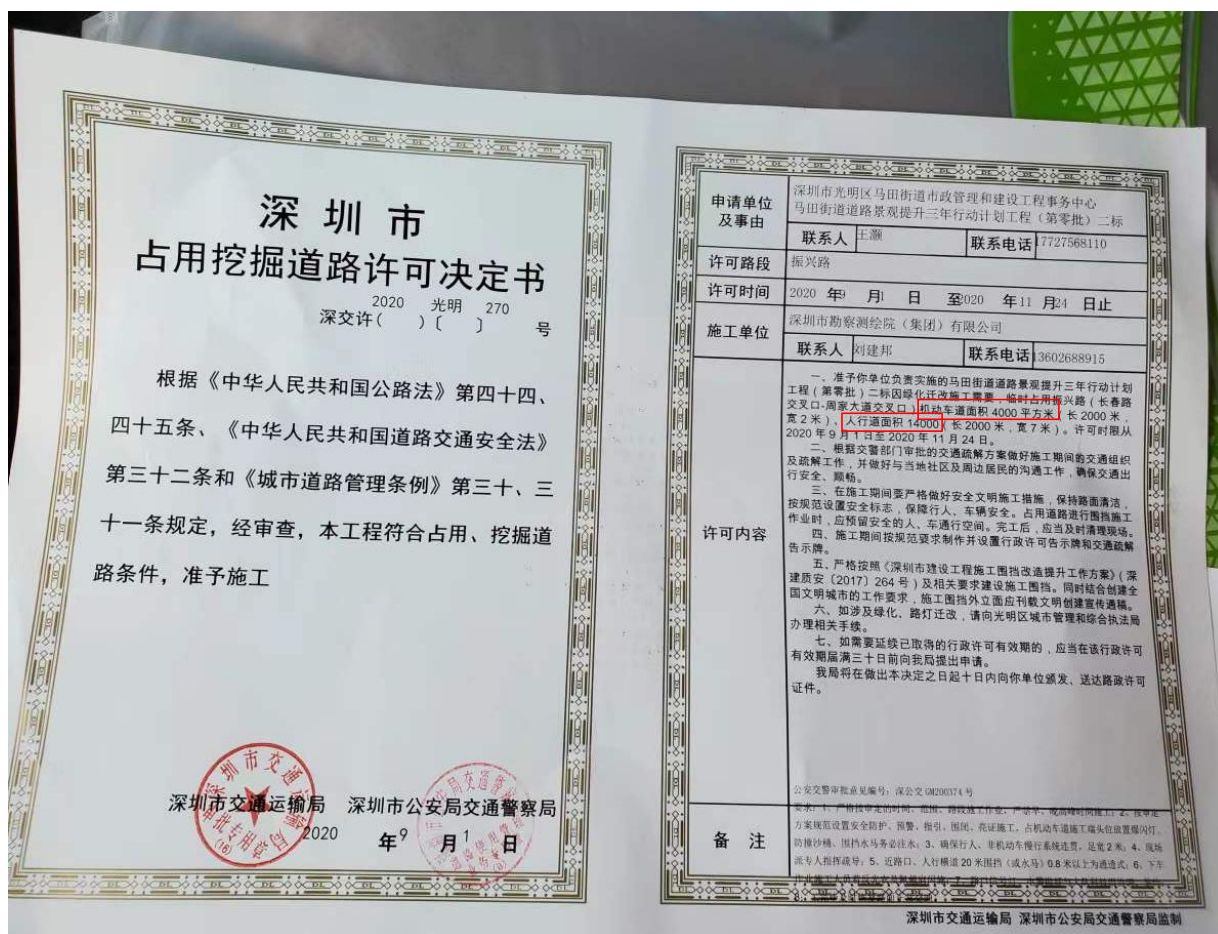 深圳市
占用挖掘道路许可决定书
2020 光明 270
深交许( )〔 〕 号
根据《中华人民共和国公路法》第四十四、
四十五条、《中华人民共和国道路交通安全法》
第三十二条和《城市道路管理条例》第三十、三
十一条规定，经审查，本工程符合占用、挖掘道
路条件，准予施工
深圳市交通运输局 深圳市公安局交通警察局
2020 年9 月1 日
申请单位及事由
深圳市光明区马田街道市政管理和建设工程事务中心
马田街道道路景观提升三年行动计划工程（第零批）二标
联系人 王灏 联系电话 17727568110
许可路段 振兴路
许可时间 2020 年9 月1 日 至2020 年11 月24 日止
施工单位 深圳市勘察测绘院（集团）有限公司
联系人 刘建邦 联系电话 13602688915
许可内容
一、准予你单位负责实施的马田街道道路景观提升三年行动计划
工程（第零批）二标因绿化迁改施工需要，临时占用振兴路（长春路
交叉口-周家大道交叉口）机动车道面积 4000 平方米（长 2000 米，
宽 2 米），人行道面积 14000（长 2000 米，宽 7 米）。许可时限从
2020 年 9 月 1 日至 2020 年 11 月 24 日。
二、根据交警部门审批的交通疏解方案做好施工期间的交通组织
及疏解工作，并做好与当地社区及周边居民的沟通工作，确保交通出
行安全、顺畅。
三、在施工期间要严格做好安全文明施工措施，保持路面清洁，
按规范设置安全标志，保障行人、车辆安全。占用道路进行围挡施工
作业时，应预留安全的人、车通行空间。完工后，应当及时清理现场。
四、施工期间按规范要求制作并设置行政许可告示牌和交通疏解
告示牌。
五、严格按照《深圳市建设工程施工围挡改造提升工作方案》（深
建质安〔2017〕264 号）及相关要求建设施工围挡。同时结合创建全
国文明城市的工作要求，施工围挡外立面应刊载文明创建宣传通稿。
六、如涉及绿化、路灯迁改，请向光明区城市管理和综合执法局
办理相关手续。
七、如需要延续已取得的行政许可有效期的，应当在该行政许可
有效期届满三十日前向我局提出申请。
我局将在做出本决定之日起十日内向你单位颁发、送达路政许可
证件。
公安交警审批意见编号：深公交 GM200374 号
备 注
要求：1、严格按审定的时间、范围、路段施工作业，严禁早、晚高峰时间施工；2、按审定
方案规范设置安全防护、预警、指引、围闭、亮证施工，占机动车道施工端头位放置爆闪灯、
防撞沙桶、围挡水马务必注水；3、确保行人、非机动车慢行系统连贯，足宽 2 米；4、现场
派专人指挥疏导；5、近路口、人行横道 20 米围挡（或水马）0.8 米以上为通透式；6、下车
深圳市交通运输局 深圳市公安局交通警察局监制